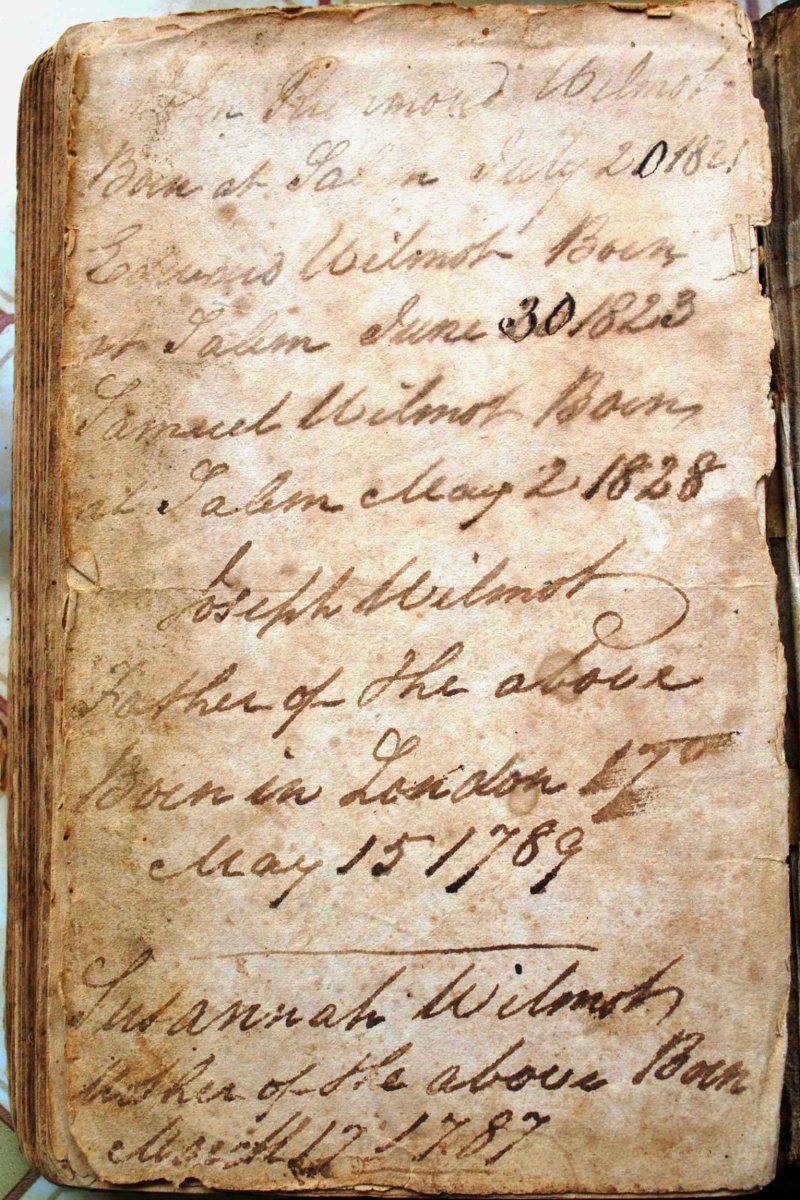 Wilmot
Born at Salem July 20 1821
Edward Wilmot Born
at Salem June 30 1823
Samuel Wilmot Born
at Salem May 2 1828
Joseph Wilmot
Father of the above
Born in London 17
May 15 1789
Susannah Wilmot
Mother of the above Born
March 17 1787